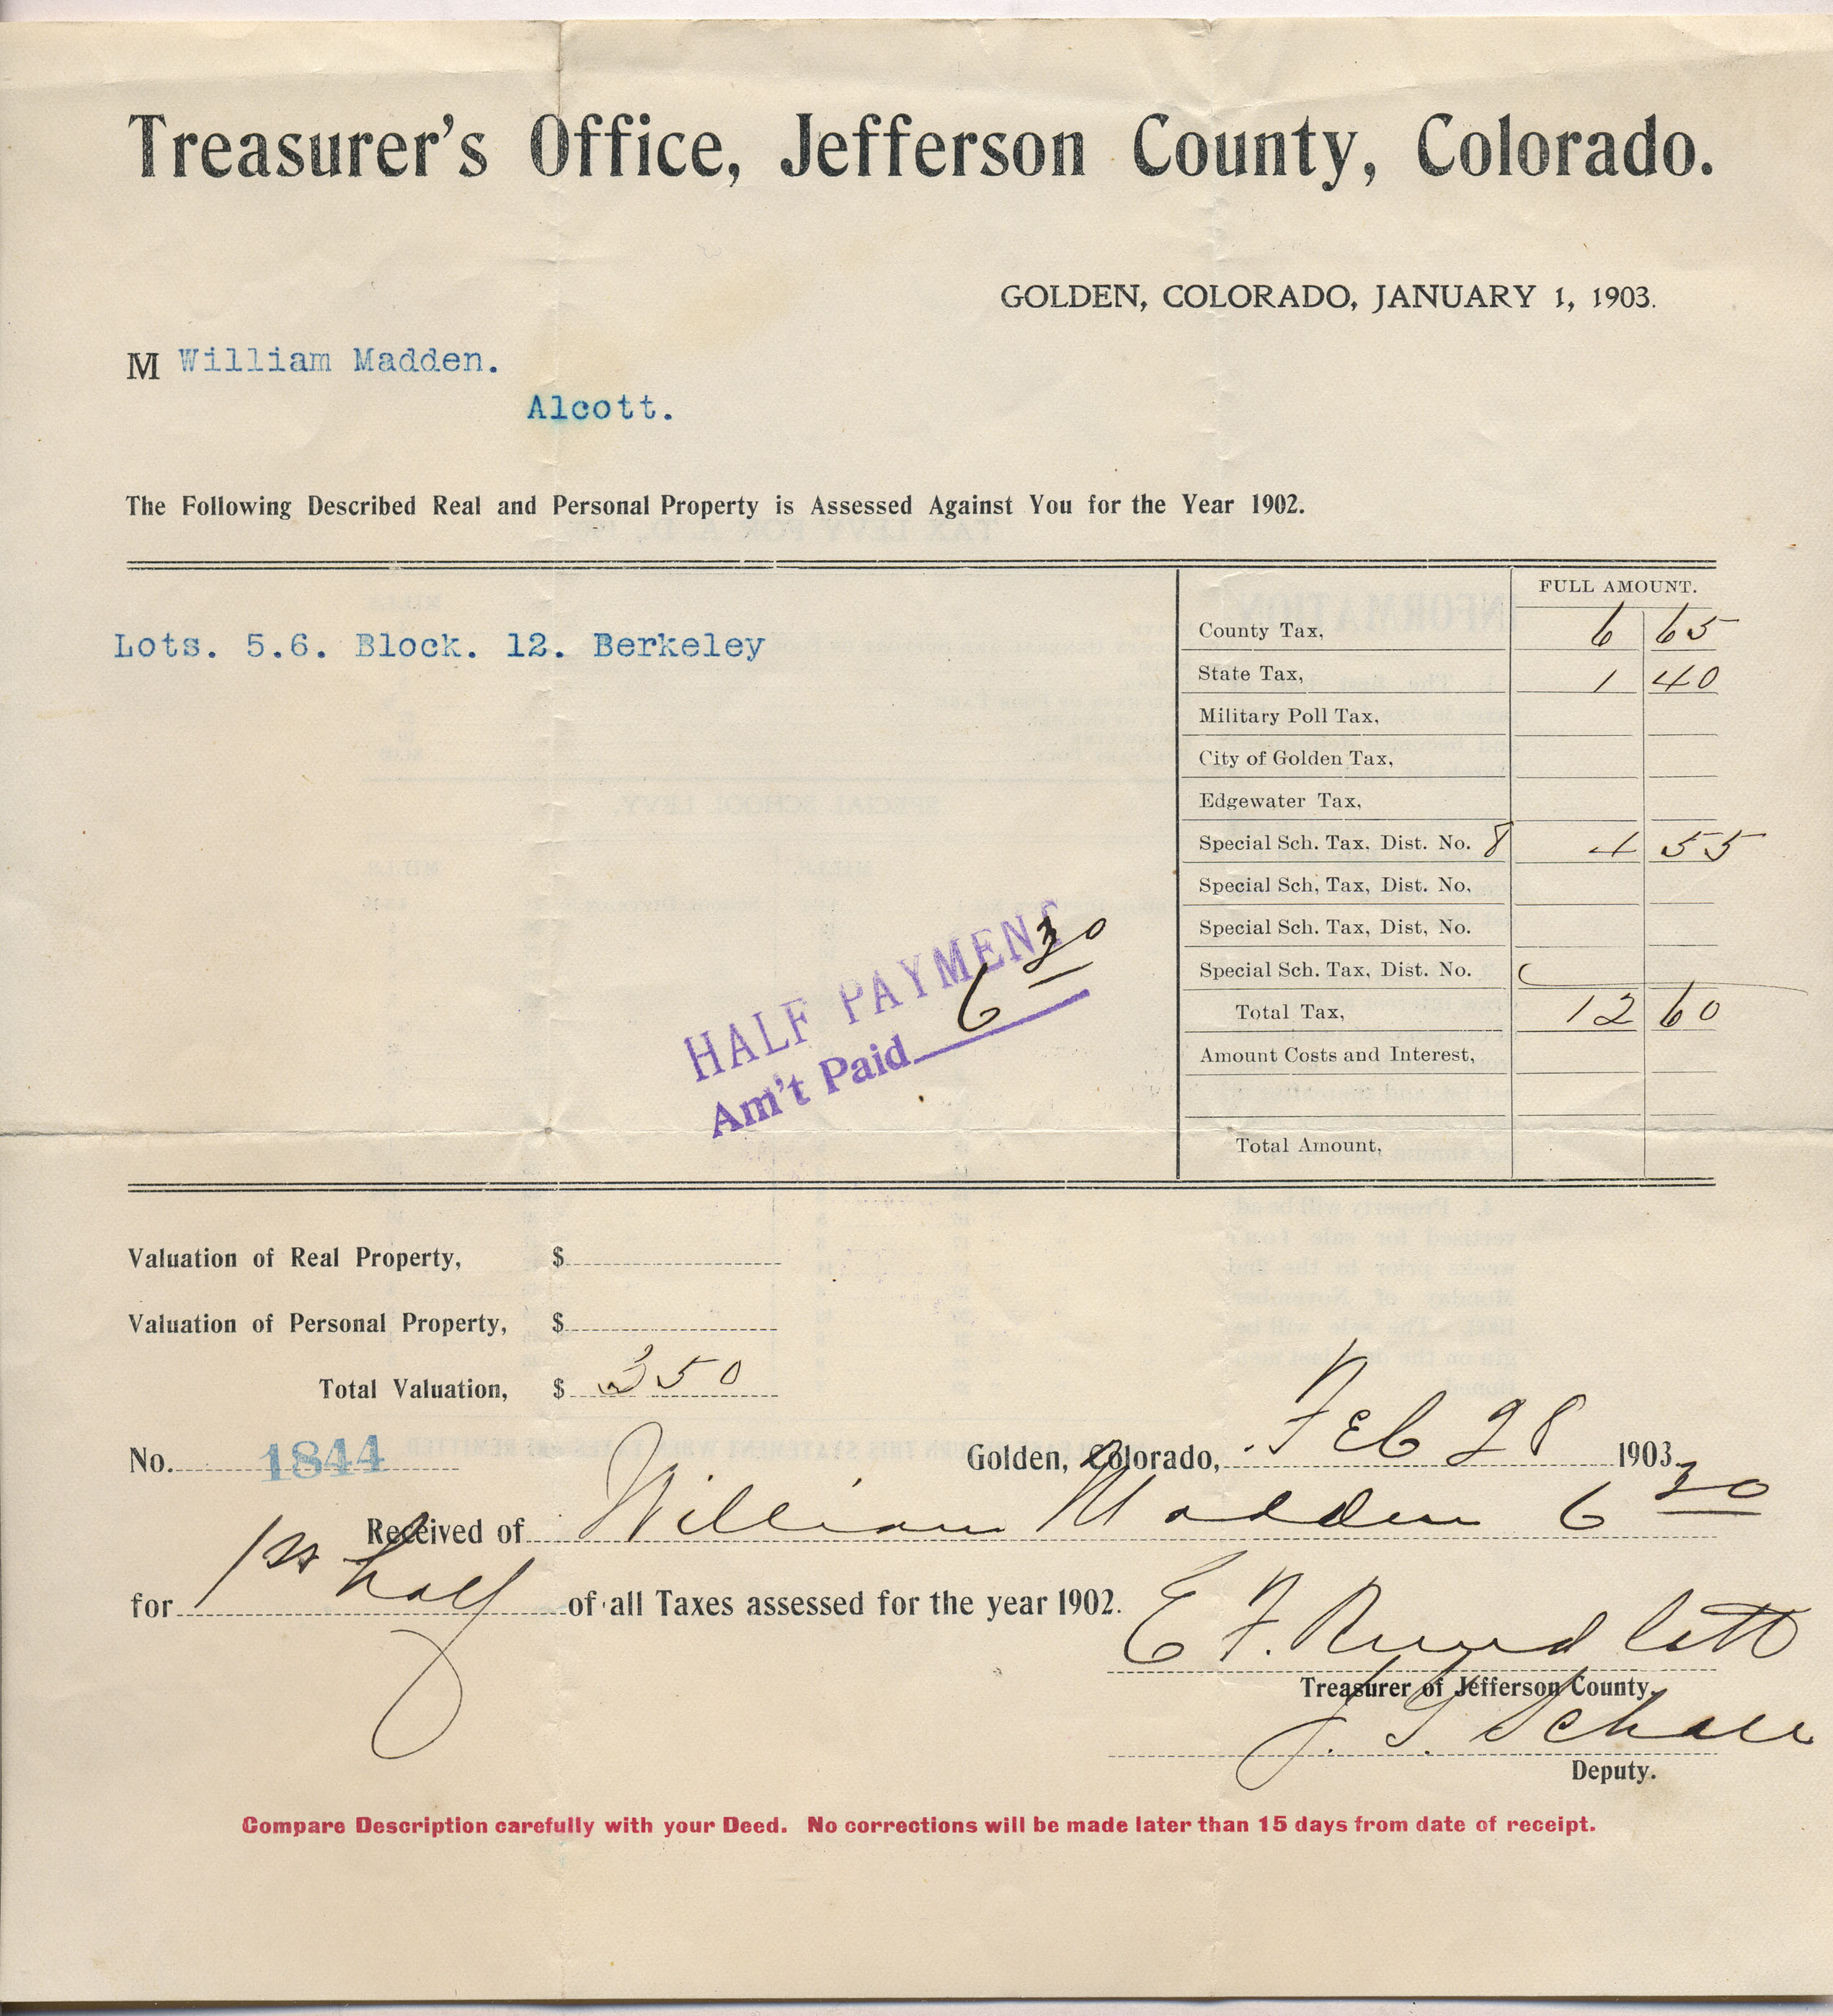 Treasurer's Office, Jefferson County, Colorado.
GOLDEN, COLORADO, JANUARY 1, 1903.
M William Madden.
Alcott.
The Following Described Real and Personal Property is Assessed Against You for the Year 1902.
FULL AMOUNT.
Lots. 5.6. Block. 12. Berkeley
County Tax, 6 65
State Tax, 1 40
Military Poll Tax,
City of Golden Tax,
Edgewater Tax,
Special Sch. Tax, Dist. No. 8 4 55
Special Sch, Tax, Dist. No,
Special Sch. Tax, Dist, No.
Special Sch. Tax, Dist. No.
Total Tax, 12 60
Amount Costs and Interest,
Total Amount,
HALF PAYMENT
Am't Paid 6 30
Valuation of Real Property, $
Valuation of Personal Property, $
Total Valuation, $ 350
No. 1844 Golden, Colorado, Feb 28 1903.
Received of William Madden 6 30
for 1st half of all Taxes assessed for the year 1902.
E F. Rundlett
Treasurer of Jefferson County.
J. G. Schall
Deputy.
Compare Description carefully with your Deed. No corrections will be made later than 15 days from date of receipt.